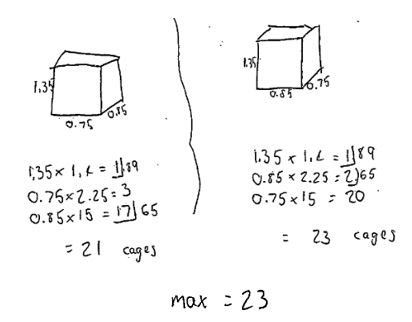 1.35
0.75
0.85
1.35 × 1.4 = 1|89
0.75 × 2.25 = 3
0.85 × 15 = 17|65
= 21 cages
1.35
0.85
0.75
1.35 × 1.4 = 1|89
0.85 × 2.25 = 2|65
0.75 × 15 = 20
= 23 cages
max = 23